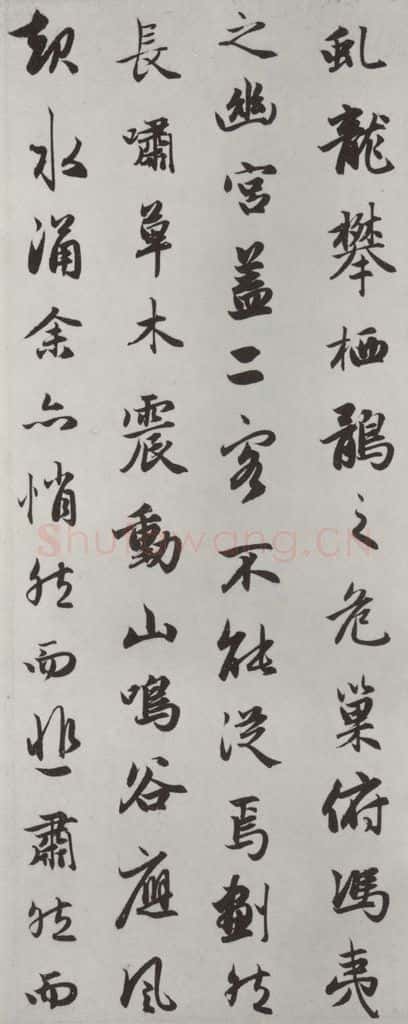 虬龍攀栖鶻之危巢俯馮夷
之幽宮蓋二客不能從焉劃然
長嘯草木震動山鳴谷應風
起水涌余亦悄然而悲肅然而
Shufawang.CN